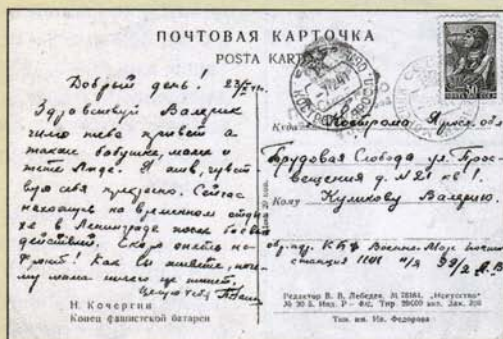 ПОЧТОВАЯ КАРТОЧКА
POSTA KARTOČKA
Добрый день! 23/X
Здравствуй Валерик
шлю тебе привет а
также бабушке, маме и
тете Люде. Я жив, чувст
вую себя прекрасно. Сейчас
нахожусь на временном отды
хе в Ленинграде после боевых
действий. Скоро опять на
фронт! Как Вы живёте, поче
му мама ничего не пишет.
Целую тебя Папа
Н. Кочергин
Конец фашистской батареи
ПОЧТА СССР
30
Куда Кострома Яросл. обл
Трудовая Слобода ул. Прос
вещения д. №21 кв 1
Кому Куликову Валерию.
обр. ад. КБФ Военно-Мор. почт
станция 1101 п/я 99/2
Редактор В. В. Лебедев. „Искусство“
Тип. им. Ив. Федорова